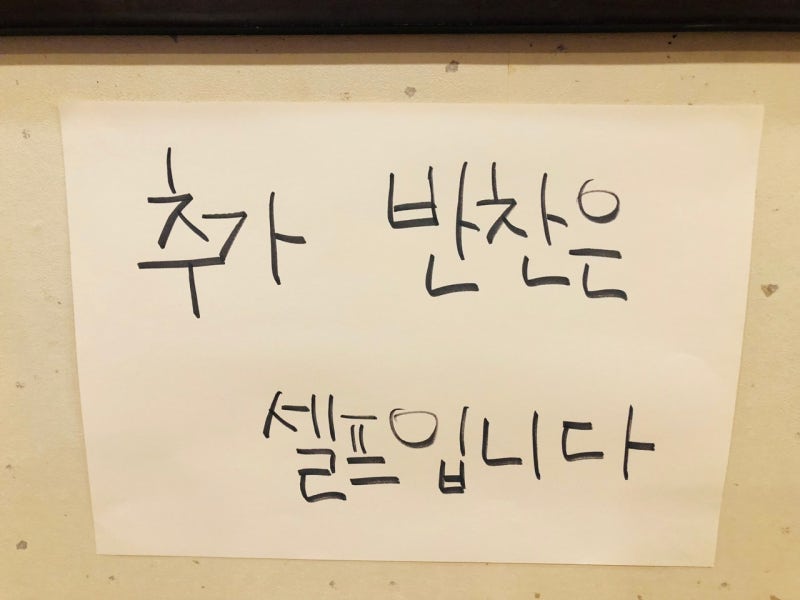 추가 반찬은
셀프입니다